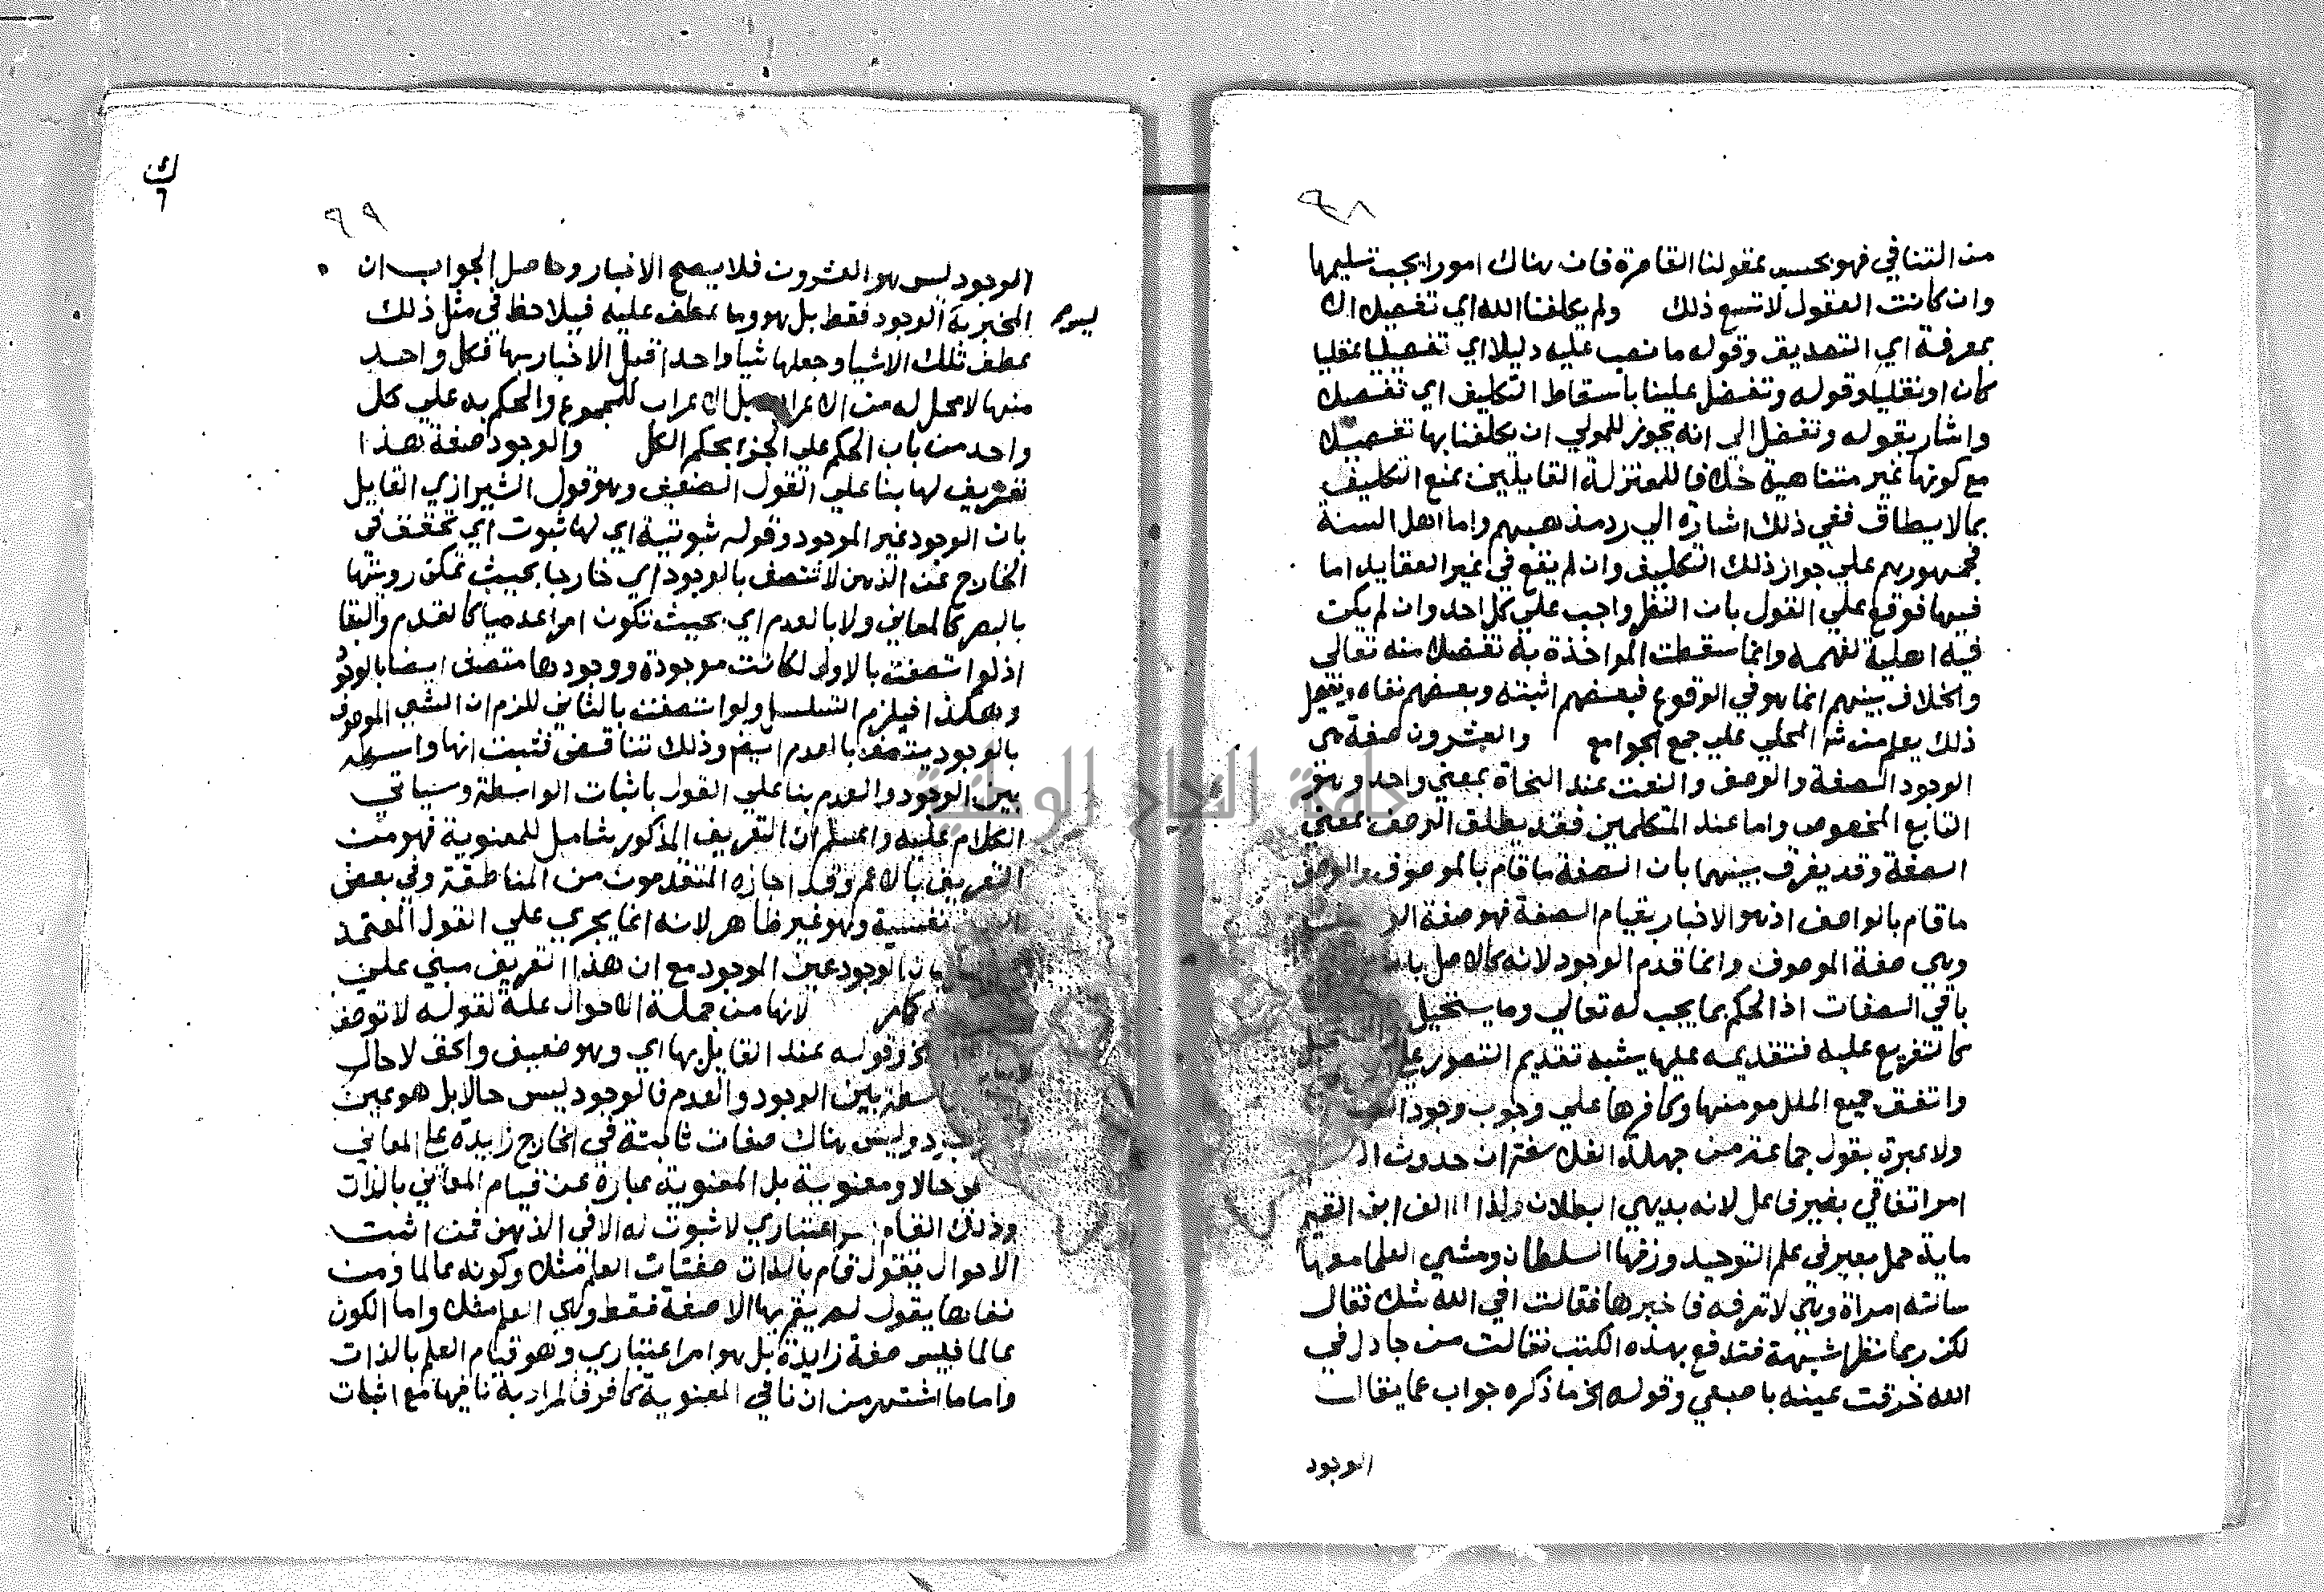 ٩٨
من التنافي فهو بحسب عقولنا القاصرة فان هناك امورا يجب تسليمها
وان كانت العقول لا تسع ذلك ولم يكلفنا الله اي تفصيلا
بمعرفة اي التصديق وقوله ما نصب عليه دليلا اي تفصيليا عقليا
كان او نقليا وقوله وتفضل علينا باسقاط التكليف اي تفصيلا
واشار بقوله وتفضل الي انه يجوز للمولي ان يكلفنا بها تفصيلا
مع كونها غير متناهية خلافا للمعتزلة القايلين بمنع التكليف
بما لا يطاق ففي ذلك اشارة الي رد مذهبهم واما اهل السنة
فجمهورهم علي جواز ذلك التكليف وان لم يقع في غير العقايد اما
فيها فوقع علي القول بان النظر واجب علي كل احد وان لم يكن
فيه اهلية لفهمه وانما سقطت المواخذة به تفضلا منه تعالي
والخلاف بينهم انما هو في الوقوع فبعضهم اثبته وبعضهم نفاه
ذلك يعلم من المحلي علي جمع الجوامع والعشرون صفة هي
الوجود الصفة والوصف والنعت عند النحاة بمعني واحد وهو
التابع المخصوص واما عند المتكلمين فقد يطلق الوصف بمعني
الصفة وقد يفرق بينهما بان الصفة ما قام بالموصوف والوصف
ما قام بالواصف اذ هو الاخبار بقيام الصفة فهو صفة
وهي صفة الموصوف وانما قدم الوجود لانه كالاصل
باقي الصفات اذ الحكم بما يجب له تعالي وما يستحيل
كالتفريع عليه فتقديمه عليها يشبه تقديم التصور علي
واتفق جميع الملل مومنها وكافرها علي وجوب وجود
ولا عبرة بقول جماعة من جهلة الفلاسفة ان حدوث
امر اتفاقي بغير فاعل لانه بديهي البطلان ولذا الف ابن
ماية حمل بعير في علم التوحيد وزفها السلطان ومشي العلما معها
سالته امراة وهي لا تعرفه فاخبرها فقالت افي الله شك فقال
لكن ربما نظرا شبهة فتدفع بهذه الكتب فقالت من جادل في
الله خرقت عينه باصبعي وقوله الخ ما ذكره جواب عما يقال
الوجود
ك
٦
٩٩
الوجود ليس هو العشرون فلا يصح الاخبار وحاصل الجواب ان
المخبر به الوجود فقط بل هو وما عطف عليه فيلاحظ في مثل ذلك
عطف تلك الاشيا وجعلها شيا واحدا قبل الاخبار بها فكل واحد
منها لا محل له من الاعراب بل الاعراب للمجموع والحكم به علي كل
واحد من باب الحكم علي الجزء بحكم الكل والوجود صفة هذا
تعريف لها بنا علي القول الضعيف وهو قول الشيرازي القايل
بان الوجود غير الموجود وقوله ثبوتية اي لها ثبوت اي تحقق في
الخارج عن الذهن لا تتصف بالوجود اي خارجا بحيث تمكن رويتها
بالبصر كالمعاني ولا بالعدم اي بحيث تكون امرا عدميا كالقدم والبقا
اذ لو اتصفت بالاول لكانت موجودة ووجودها متصف ايضا بالوجود
وهكذا فيلزم التسلسل ولو اتصفت بالثاني للزم ان الشي الموصوف
بالوجود يتصف بالعدم ايضا وذلك تناقض فثبت انها واسطة
بين الوجود والعدم بنا علي القول باثبات الواسطة وسياتي
الكلام عليه واعلم ان التعريف المذكور شامل للمعنوية فهو من
التعريف بالاعم وقد اجازه المتقدمون من المناطقة وفي بعض
نفسية وهو غير ظاهر لانه انما يجري علي القول المعتمد
ان الوجود عين الموجود مع ان هذا التعريف مبني علي
كما مر لانها من جملة الاحوال علة لقوله لا توصف
الخ وقوله عند القايل بها اي وهو ضعيف والحق لا حال
واسطة بين الوجود والعدم فالوجود ليس حالا بل هو عين
وليس هناك صفات ثابتة في الخارج زايدة علي المعاني
حالا ومعنوية بل المعنوية عبارة عن قيام المعاني بالذات
وذلك القيام امر اعتباري لا ثبوت له الا في الذهن فمن اثبت
الاحوال فيقول قام بالذات صفتان العلم مثلا وكونه عالما ومن
نفاها يقول لم يقم بها الا صفة فقط وهي العلم مثلا واما الكون
عالما فليس صفة زايدة بل هو امر اعتباري وهو قيام العلم بالذات
واما ما اشتهر من ان نافي المعنوية كافر فالمراد به نافيها مع اثبات
جامعة النجاح الوطنية